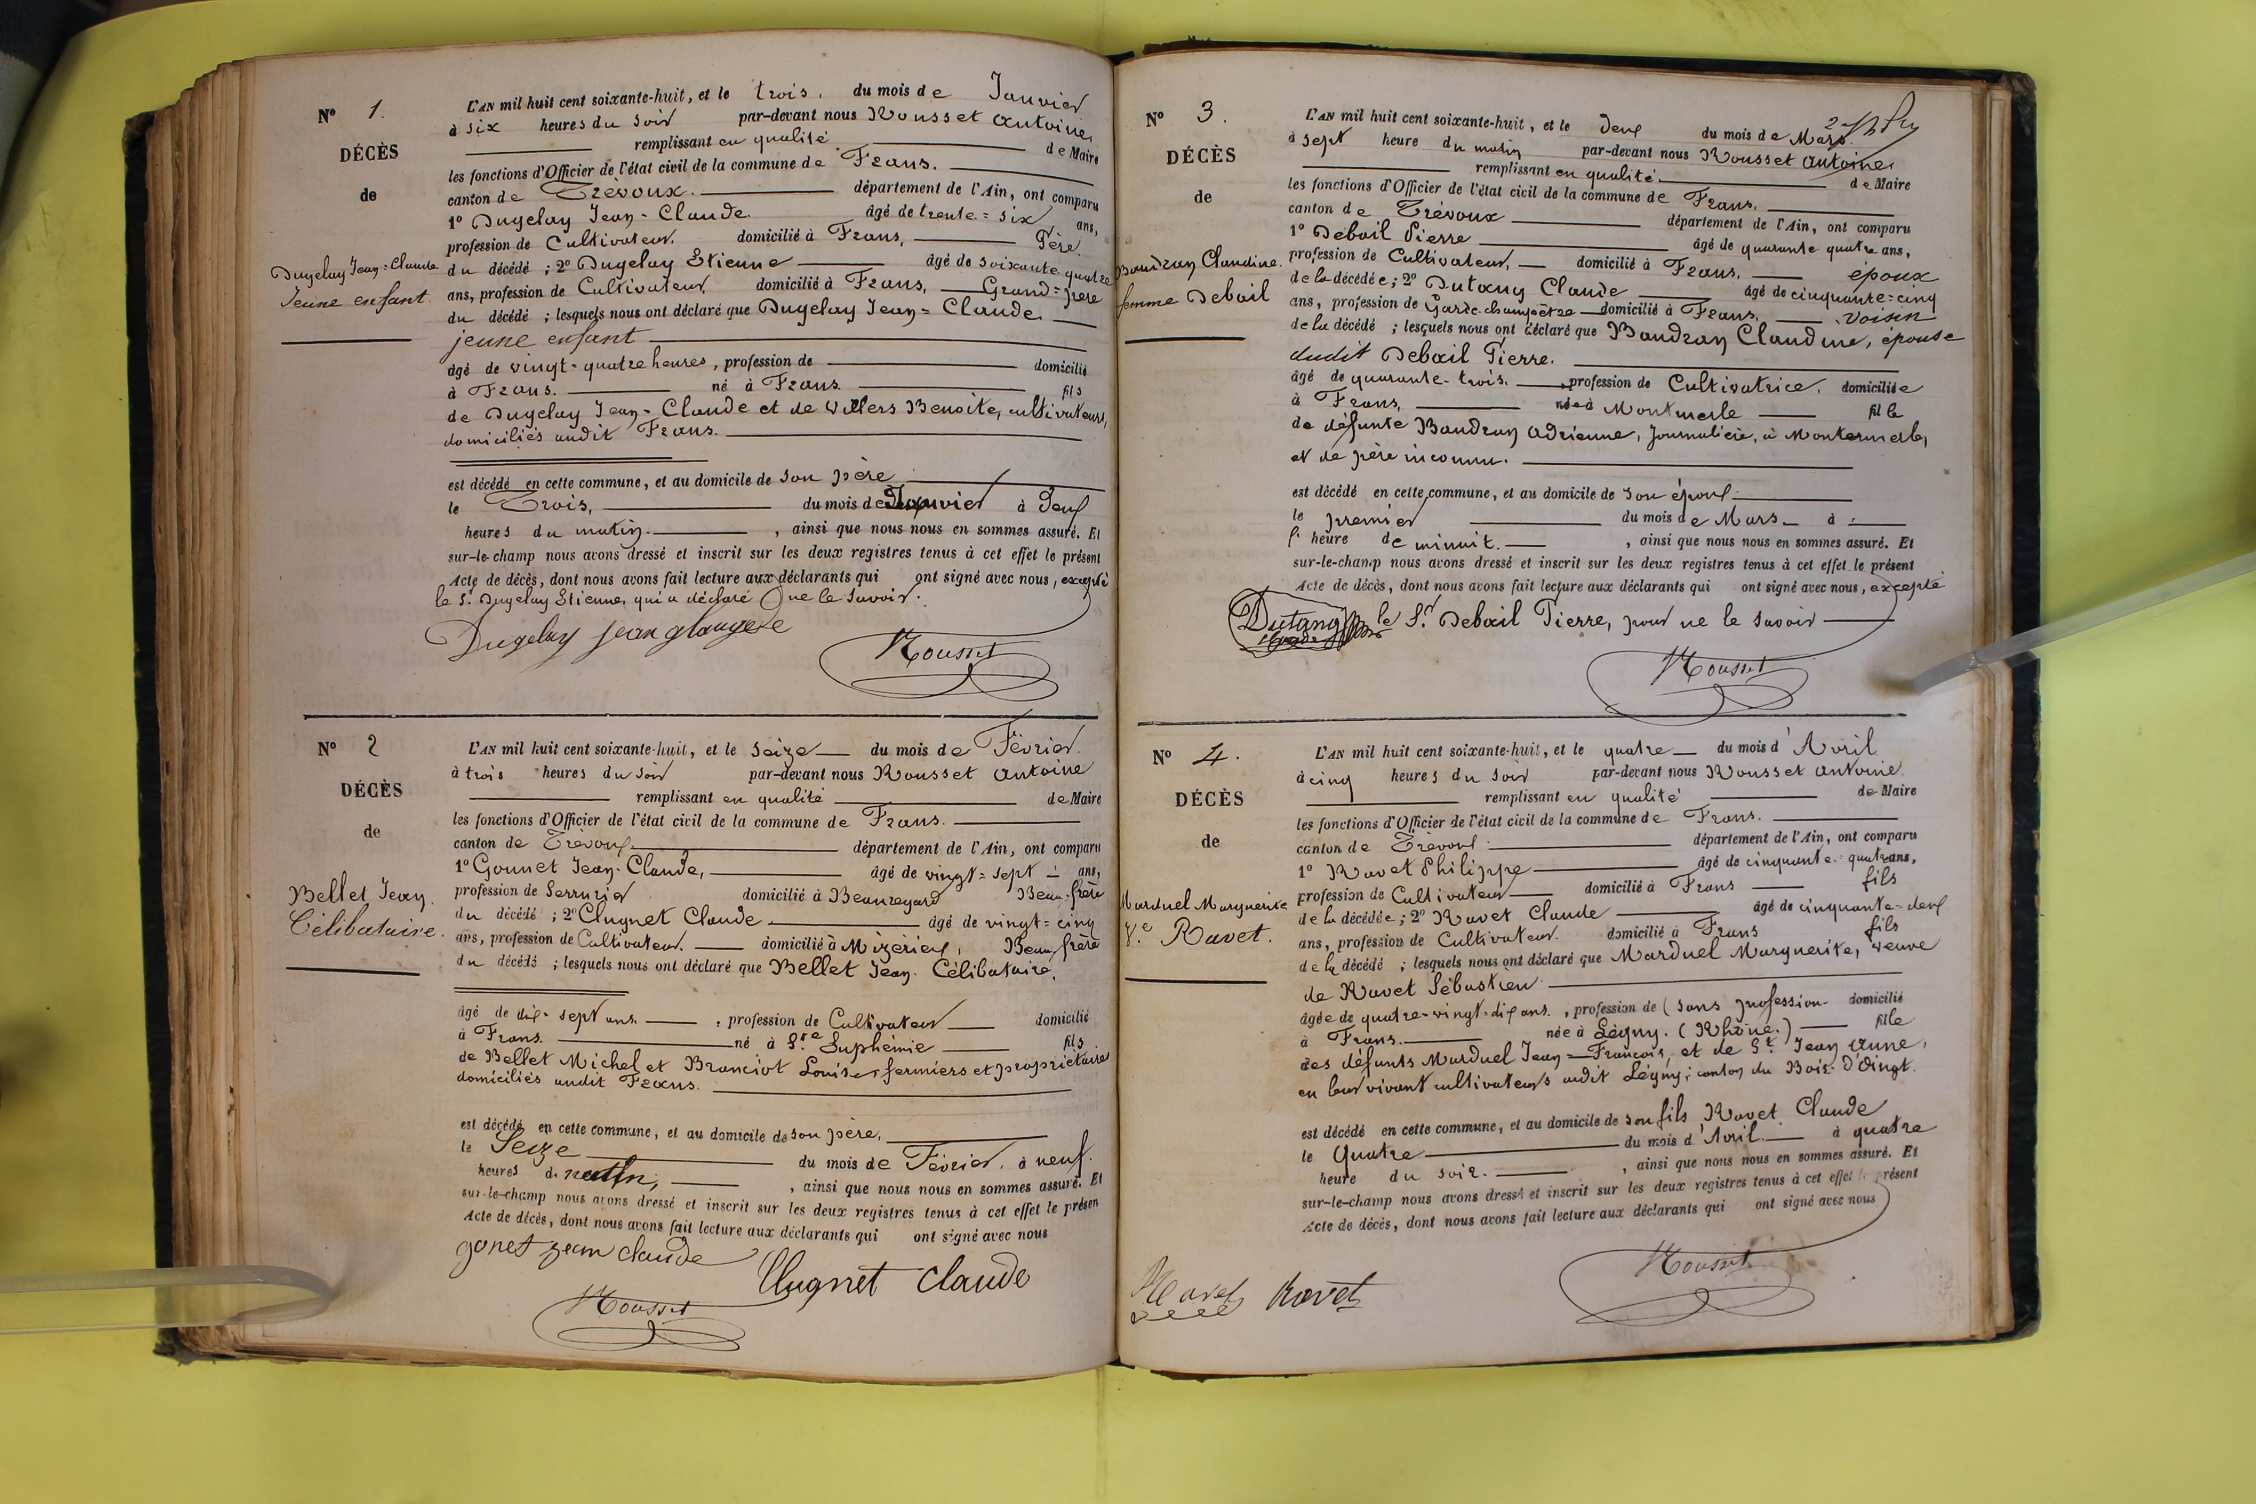 N° 1.
DÉCÈS
de
Dugelay Jean-Claude
jeune enfant.
L'AN mil huit cent soixante-huit, et le trois. du mois de Janvier
à six heures du soir par-devant nous Rousset Antoine,
remplissant en qualité de Maire
les fonctions d'Officier de l'état civil de la commune de Frans.
canton de Trévoux. département de l'Ain, ont comparu
1° Dugelay Jean-Claude âgé de trente-six ans,
profession de Cultivateur. domicilié à Frans, Père
du décédé ; 2° Dugelay Etienne âgé de soixante quatre
ans, profession de Cultivateur domicilié à Frans, Grand-père
du décédé ; lesquels nous ont déclaré que Dugelay Jean-Claude,
jeune enfant
âgé de vingt-quatre heures, profession de domicilié
à Frans. né à Frans fils
de Dugelay Jean-Claude et de Willers Benoite, cultivateurs,
domiciliés audit Frans.
est décédé en cette commune, et au domicile de son père
le Trois, du mois de Janvier à Deux
heures du matin. , ainsi que nous nous en sommes assuré. Et
sur-le-champ nous avons dressé et inscrit sur les deux registres tenus à cet effet le présent
Acte de décès, dont nous avons fait lecture aux déclarants qui ont signé avec nous, excepté
le Sr. Dugelay Etienne, qui a déclaré ne le savoir.
Dugelay jean
Rousset
N° 2
DÉCÈS
de
Bellet Jean.
Célibataire.
L'AN mil huit cent soixante-huit, et le seize du mois de Février.
à trois heures du soir par-devant nous Rousset Antoine
remplissant en qualité de Maire
les fonctions d'Officier de l'état civil de la commune de Frans.
canton de Trévoux département de l'Ain, ont comparu
1° Gounet Jean-Claude, âgé de vingt-sept ans,
profession de Serrurier domicilié à Beauregard Beau-frère
du décédé ; 2° Clugnet Claude âgé de vingt-cinq
ans, profession de Cultivateur. domicilié à Mizérieux, Beau frère
du décédé ; lesquels nous ont déclaré que Bellet Jean. Célibataire,
âgé de dix-sept ans. , profession de Cultivateur domicilié
à Frans. né à Ste Euphémie fils
de Bellet Michel et Branciot Louise, fermiers et propriétaires
domiciliés audit Frans.
est décédé en cette commune, et au domicile de son père,
le Seize du mois de Février. à neuf.
heures du matin, , ainsi que nous nous en sommes assuré. Et
sur-le-champ nous avons dressé et inscrit sur les deux registres tenus à cet effet le présen
Acte de décès, dont nous avons fait lecture aux déclarants qui ont signé avec nous
gonet jean claude
Clugnet Claude
Rousset
N° 3.
DÉCÈS
de
Baudran Claudine.
femme Debail
L'AN mil huit cent soixante-huit, et le deux du mois de Mars.
à sept heure du matin par-devant nous Rousset Antoine,
remplissant en qualité. de Maire
les fonctions d'Officier de l'état civil de la commune de Frans.
canton de Trévoux département de l'Ain, ont comparu
1° Debail Pierre âgé de quarante quatre ans,
profession de Cultivateur, domicilié à Frans, époux
de la décédée ; 2° Dutang Claude âgé de cinquante-cinq
ans, profession de Garde-champêtre domicilié à Frans, voisin
de la décédé ; lesquels nous ont déclaré que Baudran Claudine, épouse
dudit Debail Pierre.
âgé de quarante-trois. , profession de Cultivatrice, domiciliée
à Frans, née à Montmerle fille
de défunte Baudran Adrienne, journalière, à Montermerle,
et de père inconnu.
est décédé en cette commune, et au domicile de son époux
le premier du mois de Mars à
l' heure de minuit. , ainsi que nous nous en sommes assuré. Et
sur-le-champ nous avons dressé et inscrit sur les deux registres tenus à cet effet le présent
Acte de décès, dont nous avons fait lecture aux déclarants qui ont signé avec nous, excepté
Dutang le Sr. Debail Pierre, pour ne le savoir
Rousset
N° 4.
DÉCÈS
de
Marduel Marguerite
Ve Ravet.
L'AN mil huit cent soixante-huit, et le quatre du mois d'Avril
à cinq heures du soir par-devant nous Rousset Antoine.
remplissant en qualité de Maire
les fonctions d'Officier de l'état civil de la commune de Frans.
canton de Trévoux département de l'Ain, ont comparu
1° Ravet Philippe âgé de cinquante-quatre ans,
profession de Cultivateur domicilié à Frans fils
de la décédée ; 2° Ravet Claude âgé de cinquante-deux
ans, profession de Cultivateur. domicilié à Frans fils
de la décédé ; lesquels nous ont déclaré que Marduel Marguerite, veuve
de Ravet Sébastien
âgée de quatre-vingt-dix ans. , profession de (sans profession domicilié
à Frans. née à Légny. (Rhône.) fille
des défunts Marduel Jean-François, et de St. Jean Anne,
en leur vivant cultivateurs audit Légny ; canton du Bois-d'Oingt.
est décédé en cette commune, et au domicile de son fils Ravet Claude
le Quatre du mois d'Avril. à quatre
heure du soir. , ainsi que nous nous en sommes assuré. Et
sur-le-champ nous avons dressé et inscrit sur les deux registres tenus à cet effet le présent
Acte de décès, dont nous avons fait lecture aux déclarants qui ont signé avec nous
Ravet Ravet
Rousset